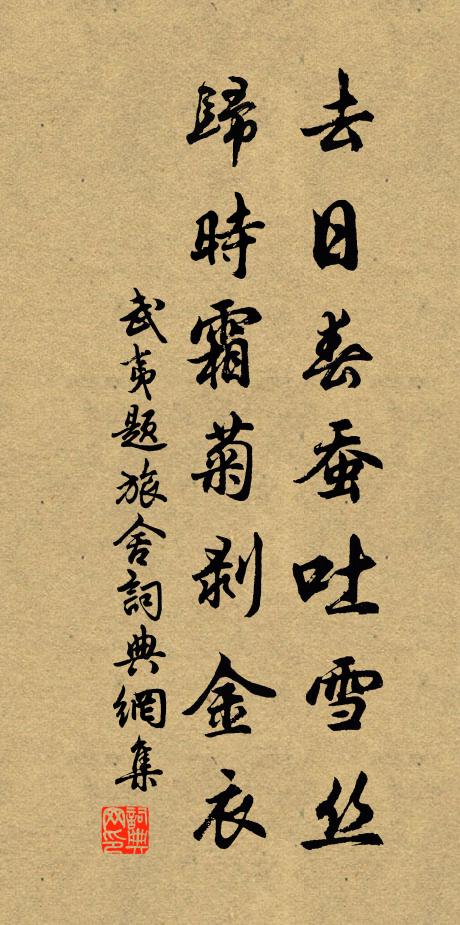 去日春蚕吐雪丝
歸時霜菊剥金衣
武夷題旅舍詞典網集
詞典网印